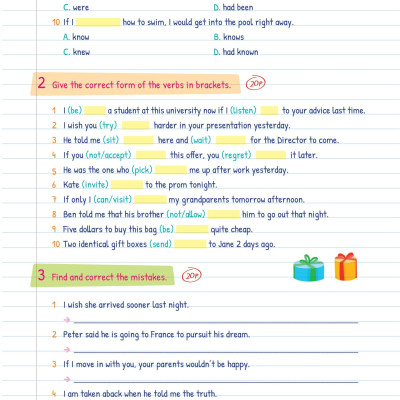 C. were D. had been
10 If I how to swim, I would get into the pool right away.
A. know B. knows
C. knew D. had known
2 Give the correct form of the verbs in brackets. 20đ
1 I (be) a student at this university now if I (listen) to your advice last time.
2 I wish you (try) harder in your presentation yesterday.
3 He told me (sit) here and (wait) for the Director to come.
4 If you (not/accept) this offer, you (regret) it later.
5 He was the one who (pick) me up after work yesterday.
6 Kate (invite) to the prom tonight.
7 If only I (can/visit) my grandparents tomorrow afternoon.
8 Ben told me that his brother (not/allow) him to go out that night.
9 Five dollars to buy this bag (be) quite cheap.
10 Two identical gift boxes (send) to Jane 2 days ago.
3 Find and correct the mistakes. 20đ
1 I wish she arrived sooner last night.
2 Peter said he is going to France to pursuit his dream.
3 If I move in with you, your parents wouldn't be happy.
4 I am taken aback when he told me the truth.